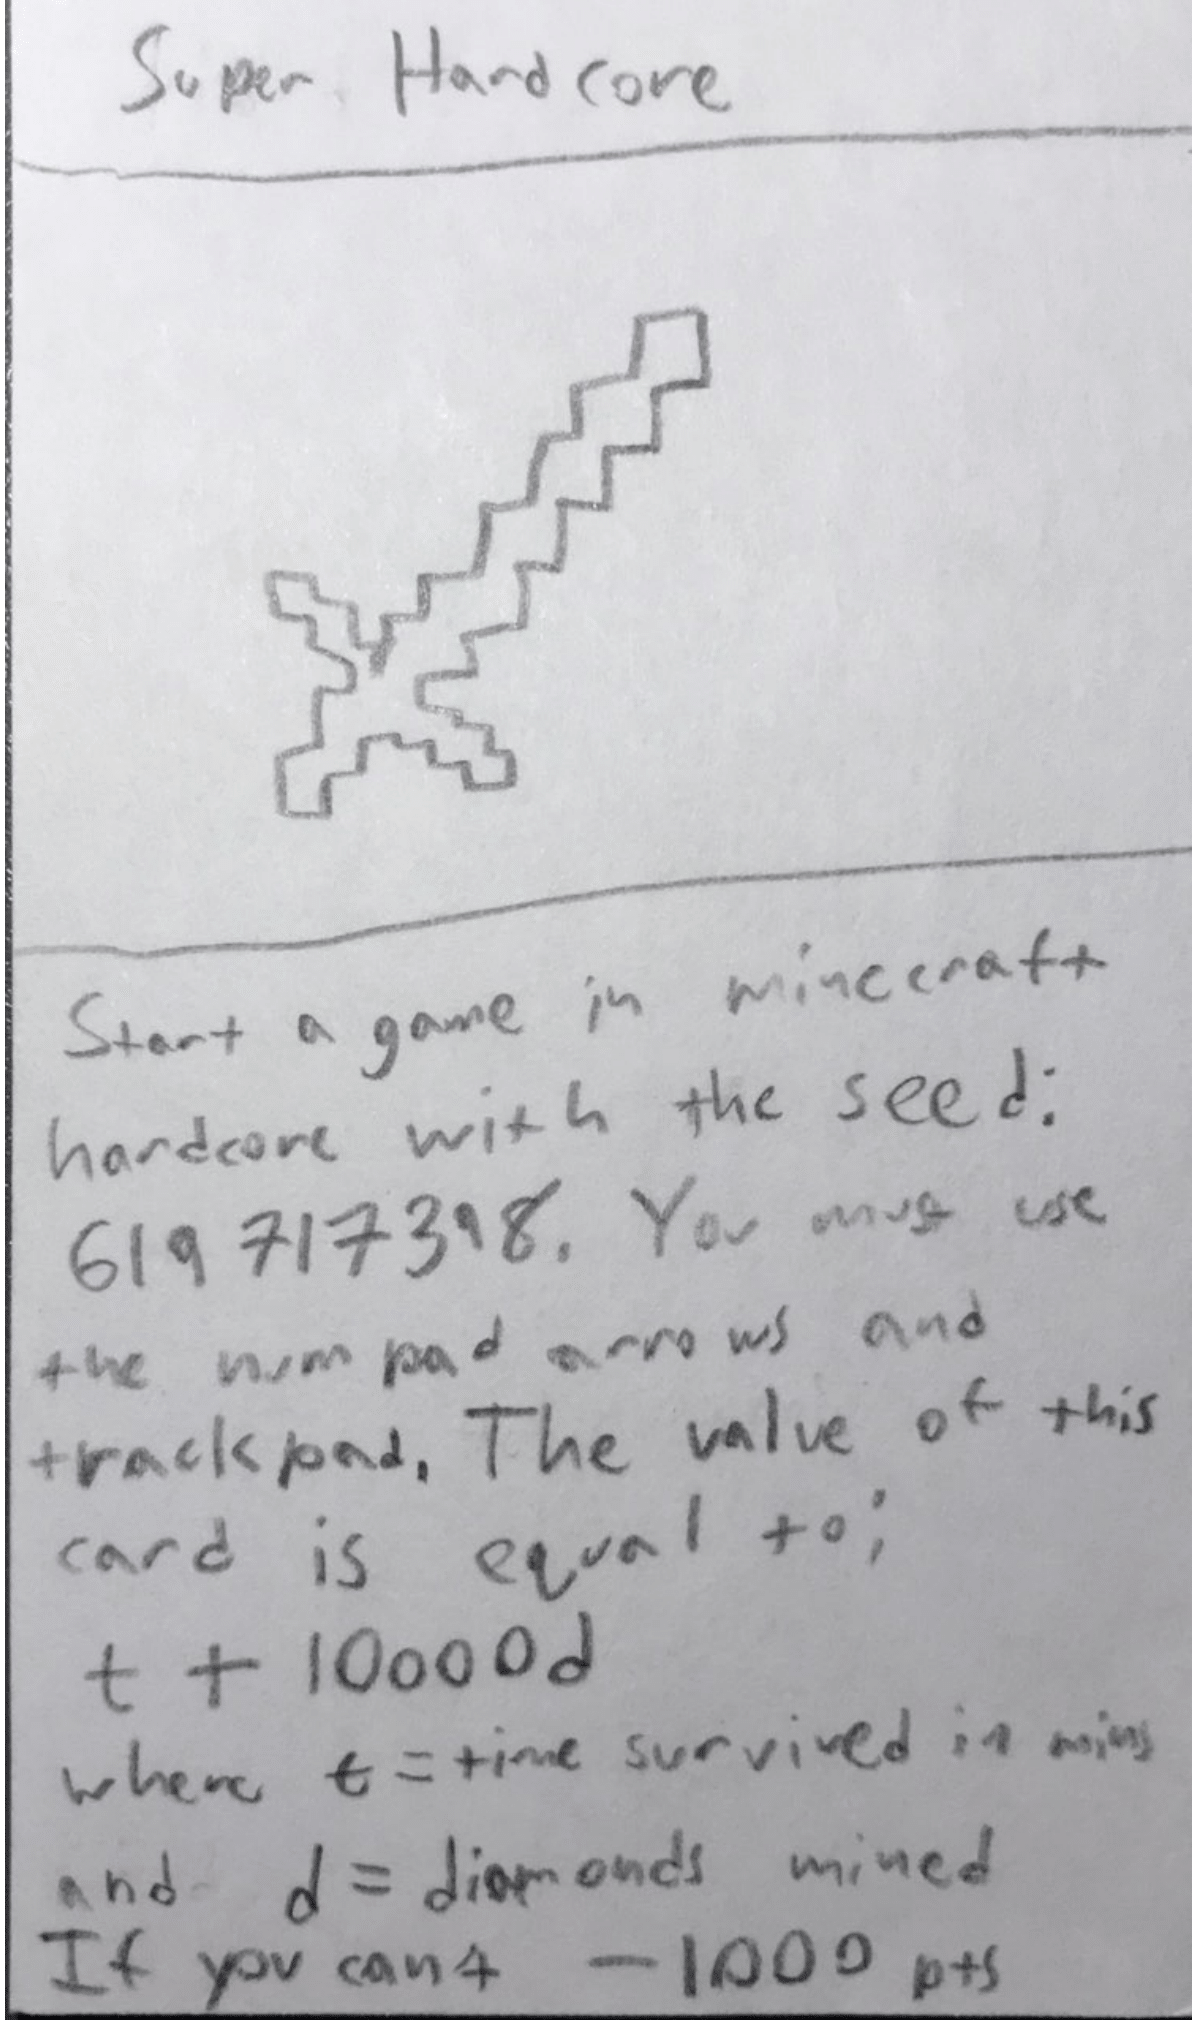 Super Hardcore
Start a game in minecraft
hardcore with the seed:
619717398. You must use
the numpad arrows and
trackpad. The value of this
card is equal to;
t + 10000d
where t = time survived in mins
and d = diamonds mined
If you cant -1000 pts